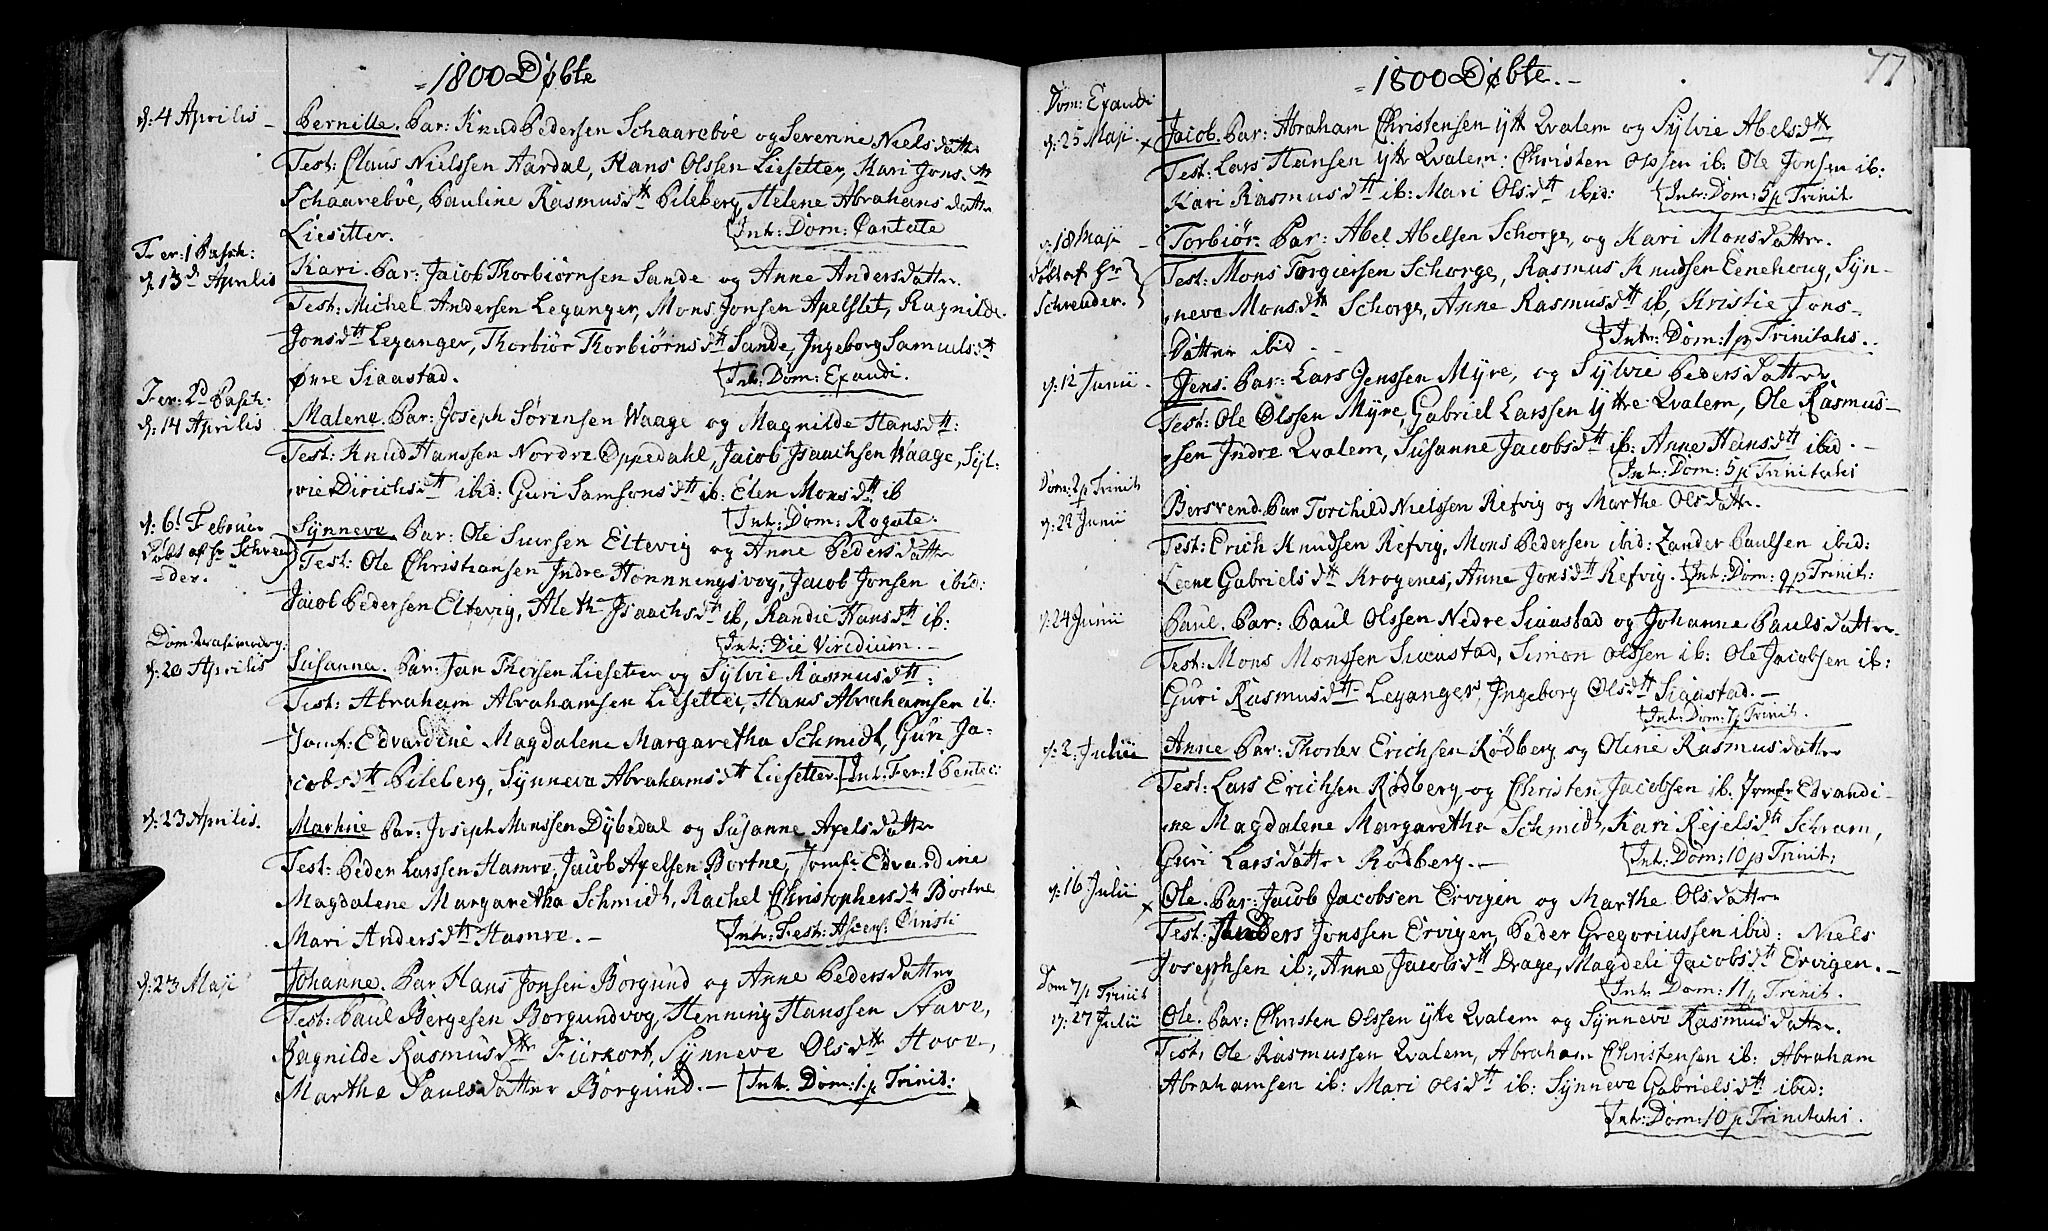 1800 Døbte
d: 4 Aprilis
Pernille. Par: Knud Pedersen Schaareböe og Severine Nielsdatter
Test: Claus Nielssen Aardal, Hans Olssen Liesetter, Kari Jonsdtt
Schaareböe, Pauline Rasmusdtt Pileberg, Helene Abrahamsdatter
Liesetter. Int: Dom: Cantate
Fer: 1 Pasch:
d: 13d Aprilis
Kari. Par: Jacob Thorbiörnsen Sande og Anne Andersdatter.
Test: Michel Andersen Leganger, Mons Jonsen Apelslet, Ragnilde
Jonsdtt Leganger, Thorbiör Thorbiörnsdtt Sande, Ingeborg Samuelsdtt
Øvre Siaastad. Int: Dom: Exaudi.
Fer: 2d Pasch:
d: 14 Aprilis
Malene. Par: Joseph Sørensen Waage og Magnilde Hansdtt:
Test: Knud Hanssen Nordre Oppedahl, Jacob Isaachsen Waage, Syl-
vie Dirichsdtt ibid: Guri Samsonsdtt ib: Elen Monsdtt ib
Int: Dom: Rogate.
d: 6t Februar
Døbt af Hr Schreu
der.
Synneve. Par: Ole Siursen Eltevig og Anne Pedersdatter
Test: Ole Christiansen Indre Honnningsvog, Jacob Jonsen ibid:
Jacob Pedersen Eltevig, Aleth Isaachsdtt ib, Randie Hansdtt ib:
Int: Die Viridium.
Dom: Quasimodog:
d: 20 Aprilis
Susanna. Par: Jan Thorsen Liesetter og Sylvie Rasmusdtt:
Test: Abraham Abrahamsen Liesetter, Hans Abrahamsen ib:
Jomf: Edvardine Magdalene Margaretha Schmidt, Guri Ja-
cobsdtt Pileberg, Synneva Abrahamsdtt Liesetter. Int: Fer: 1 Pentec:
d: 23 Aprilis.
Marthe Par: Joseph Monssen Dybedal og Susanne Axelsdatter
Test: Peder Larssen Hamre, Jacob Axelsen Bortne, Jomfr Edvardine
Magdalene Margaretha Schmidt, Rachel Christophersdtt Bortne
Mari Andersdtt Hamre.- Int: Fest: Ascens: Christi
d: 23 Maji
Johanne. Par Hans Jonsen Borgund og Anne Pedersdatter
Test: Paul Børgesen Borgundvog, Henning Hanssen Aave,
Ragnilde Rasmusdtt Fürkort, Synneve Olsdtt Hove,
Marthe Paulsdatter Borgund.- Int: Dom: 1 p Trinit:
1800 Døbte.-
77
Dom: Exaudi
d: 25 Maji
Jacob. Par: Abraham Christensen ytt Qvalem og Sylvie Abelsdtt
Test: Lars Hansen ytt Qvalem: Christen Olssen ib: Ole Jonsen ib:
Kari Rasmusdtt ib: Mari Olsdtt ibid: Int: Dom: 5 p Trinit
d: 18 Maji
døbt af Hr
Schreuder.
Torbiör. Par: Abel Abelsen Schorge, og Kari Monsdatter.
Test: Mons Torgiersen Schorge, Rasmus Knudsen Eenehoug, Syn-
neve Monsdtt Schorge, Anne Rasmusdtt ib, Kristie Jons-
Datter ibid Int: Dom: 1 p Trinitatis.
d: 12 Junii
Jens. Par: Lars Jenssen Myre, og Sylvie Pedersdatter
Test: Ole Olssen Myre, Gabriel Larssen ytre Qvalem, Ole Rasmus-
sen Indre Qvalem, Susanne Jacobsdtt ib: Anne Hansdtt ibid.-
Int: Dom: 5 p Trinitatis
Dom: 2 p Trinit
d: 22 Junii
Bersvend. Par Torchild Nielssen Refvig og Marthe Olsdatter.
Test: Erich Knudsen Refvig, Mons Pedersen ibid: Zander Paulsen ibid:
Leene Gabrielsdtt Krogenes, Anne Jonsdtt Refvig. Int: Dom: 9 p Trinit:
d: 24 Junii
Paul. Par: Paul Olssen Nedre Siaastad og Johanne Paulsdatter.
Test: Mons Monssen Siaastad, Simon Olssen ib: Ole Jacobsen ib:
Guri Rasmusdtt Leganger, Ingeborg Olsdtt Siaastad.-
Int: Dom: 7 p Trinit.
d: 2. Julii
Anne Par: Thorlev Erichsen Rödberg og Oline Rasmusdatter
Test: Lars Erichsen Rødberg og Christen Jacobsen ib: Jomfr Edvardi-
ne Magdalene Margaretha Schmidt, Kari Rejelsdtt Schram,
Guri Larsdatter Rødberg.- Int: Dom: 10 p Trinit:
d: 16 Julii
Ole. Par: Jacob Jacobsen Ervigen og Marthe Olsdatter
Test: Anders Jonssen Ervigen, Peder Gregoriussen ibid: Niels
Josephsen ib:, Anne Jacobsdtt Drage, Magdeli Jacobsdtt Ervigen.-
Int: Dom: 11 p Trinit.
Dom 7 p Trinit
d: 27 Julii
Ole. Par: Christen Olssen ytte Qvalem og Synneve Rasmusdatter.
Test: Ole Rasmussen Qvalem, Abraham Christensen ib: Abraham
Abrahamsen ib: Mari Olsdtt ib: Synneve Gabrielsdtt ibid:
Int: Dom: 10 p Trinitatis.